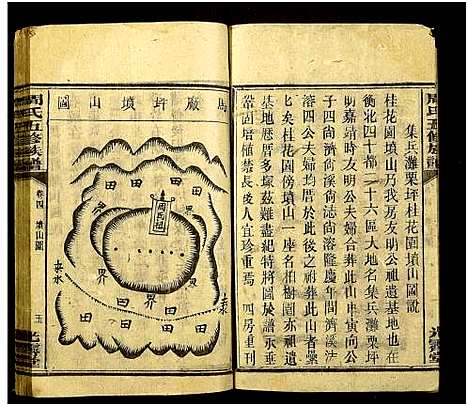 周氏五修族譜
集兵灘栗坪桂花園墳山圖說
桂花園墳山乃我房友明公祖遺基地也在
衡北四十都二十六區大地名集兵灘栗坪
明嘉靖時友明公夫婦合葬此山申寅向公
子四尚濟尚溪尚誌尚溶隆慶年間濟溪
溶四公夫婦均居於此後之祔葬此山者纍
七矣桂花園傍墳山一座名柏樹園亦祖遺
基地厯葬多塚茲難盡紀特將圖於譜
陰陽固禁長後人宜珍重焉 四房重刊
光霽堂
馬廠坪墳山圖
田
田
田
界
界
田
界
界
田
田
周氏祖
來水
周氏五修族譜
卷四 墳山圖
五
光霽堂